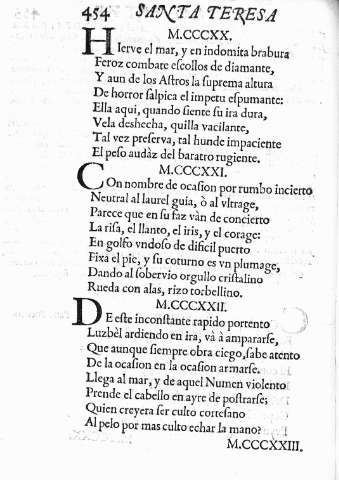 454 SANTA TERESA
M.CCCXX.
Hierve el mar, y en indomita brabura
Feroz combate eſcollos de diamante,
Y aun de los Aſtros la ſuprema altura
De horror ſalpica el impetu eſpumante:
Ella aqui, quando ſiente ſu ira dura,
Vela deshecha, quilla vacilante,
Tal vez preſerva, tal hunde impaciente
El peſo audàz del baratro rugiente.
M.CCCXXI.
Con nombre de ocaſion por rumbo incierto
Neutral al laurel guia, ò al vltrage,
Parece que en ſu faz vàn de concierto
La riſa, el llanto, el iris, y el corage:
En golfo vndoſo de dificil puerto
Fixa el pie, y ſu coturno es vn plumage,
Dando al ſobervio orgullo criſtalino
Rueda con alas, rizo torbellino.
M.CCCXXII.
De eſte inconſtante rapido portento
Luzbèl ardiendo en ira, và à ampararſe,
Que aunque ſiempre obra ciego, ſabe atento
De la ocaſion en la ocaſion armarſe.
Llega al mar, y de aquel Numen violento
Prende el cabello en ayre de poſtrarſe;
Quien creyera ſer culto corteſano
Al pelo por mas culto echar la mano?
M.CCCXXIII.